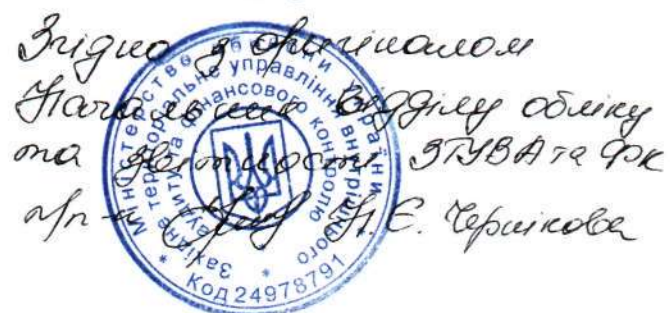 Згідно з оригіналом
Начальник відділу обліку
та звітності ЗТУВА та ФК
п/п-к Н.Є. Чернікова
Міністерство оборони України
Західне територіальне управління внутрішнього
аудиту та фінансового контролю
* Код 24978791 *